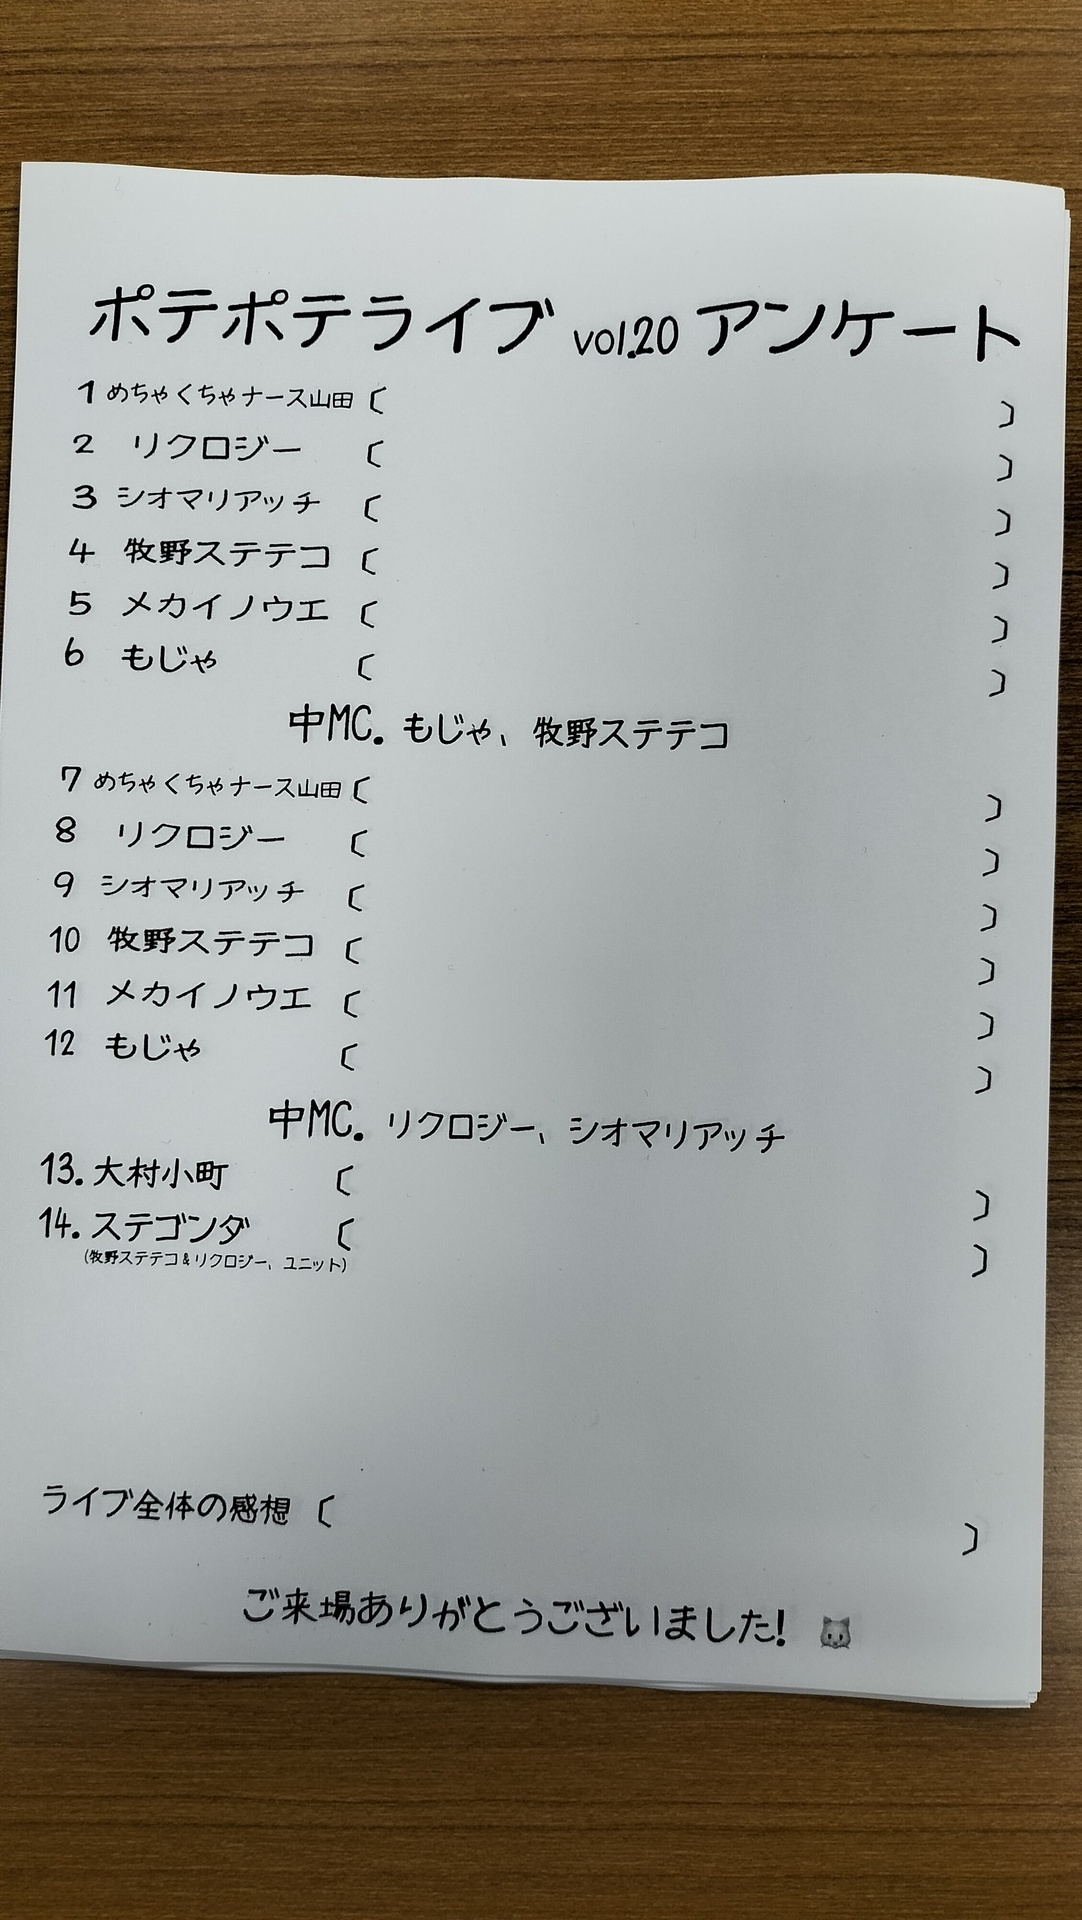 ポテポテライブ vol.20 アンケート
1 めちゃくちゃナース山田 〔 〕
2 リクロジー 〔 〕
3 シオマリアッチ 〔 〕
4 牧野ステテコ 〔 〕
5 メカイノウエ 〔 〕
6 もじゃ 〔 〕
中MC. もじゃ、牧野ステテコ
7 めちゃくちゃナース山田 〔 〕
8 リクロジー 〔 〕
9 シオマリアッチ 〔 〕
10 牧野ステテコ 〔 〕
11 メカイノウエ 〔 〕
12 もじゃ 〔 〕
中MC. リクロジー、シオマリアッチ
13. 大村小町 〔 〕
14. ステゴンダ 〔 〕
(牧野ステテコ&リクロジー、ユニット)
ライブ全体の感想 〔 〕
ご来場ありがとうございました!